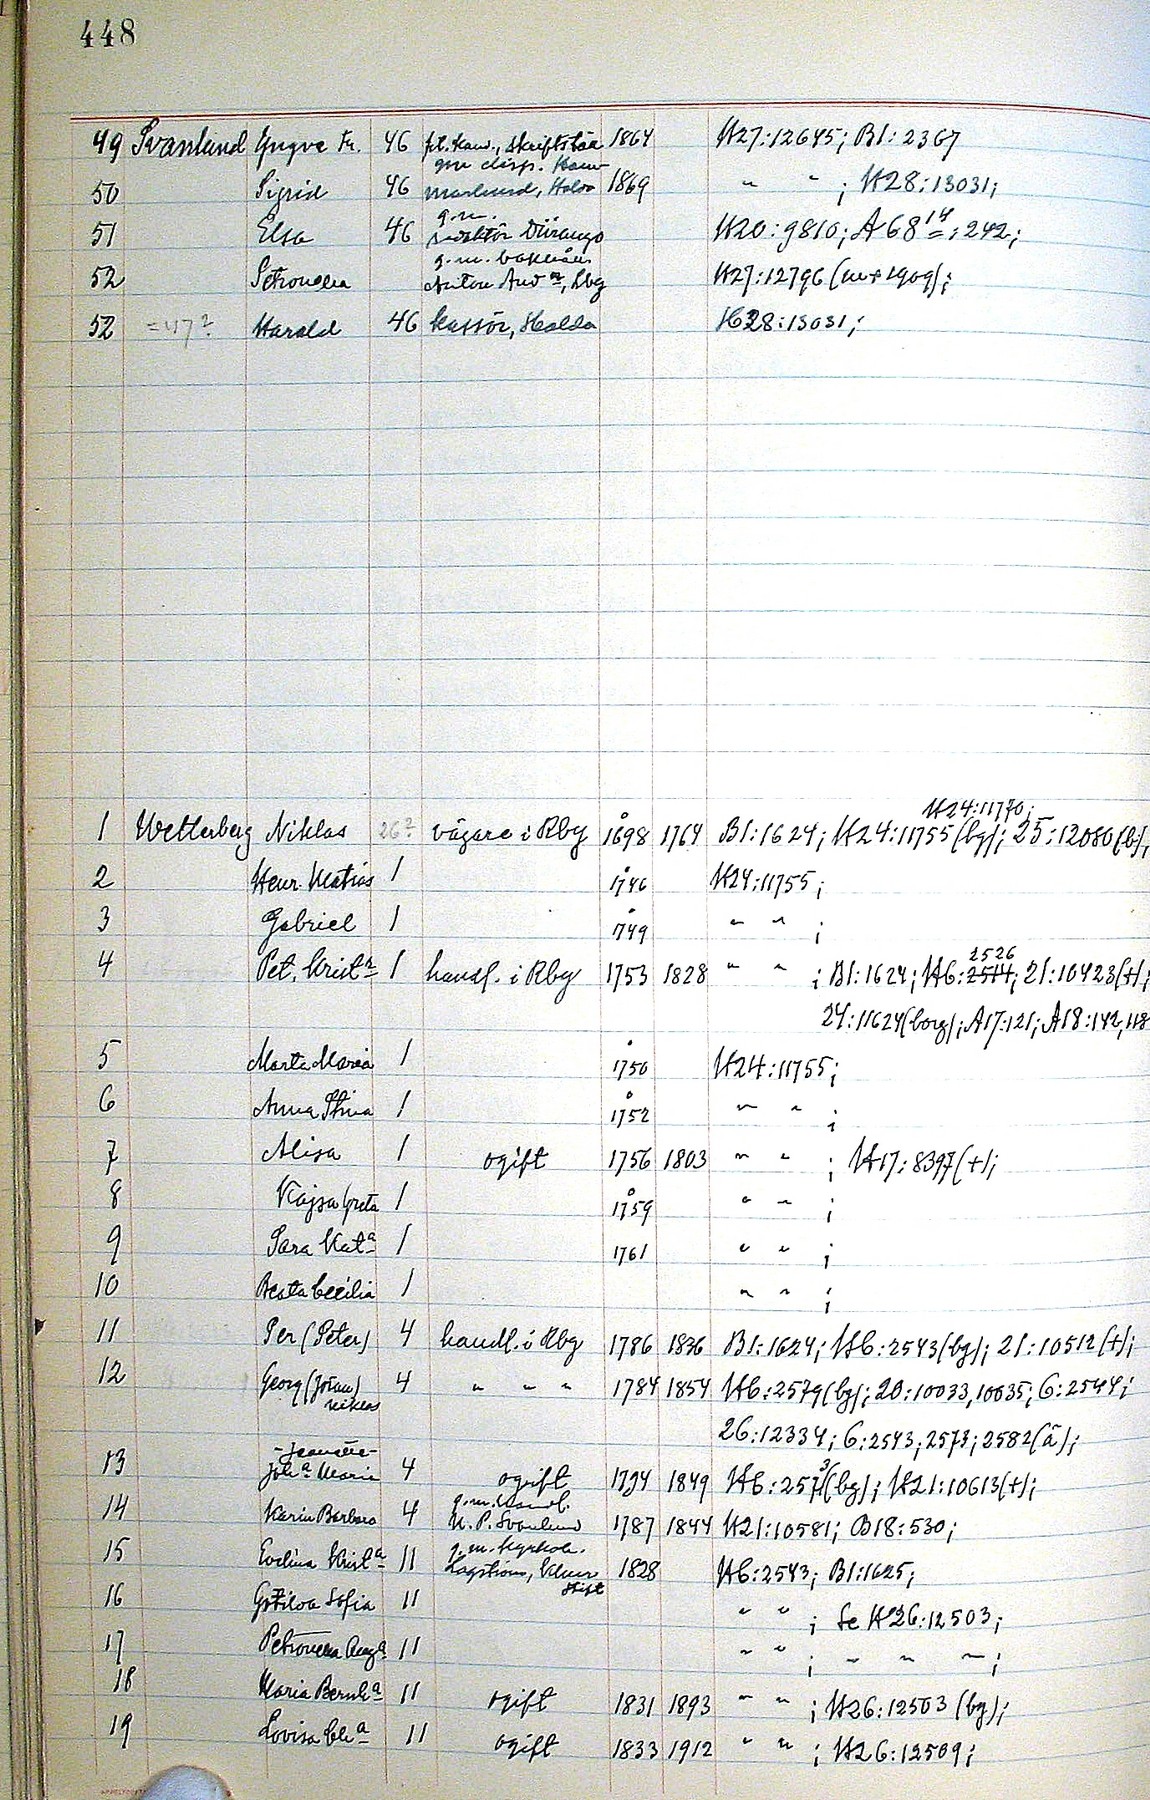 448
49 Svanlund Yngve Fr. 46 fil. kand., 1864 H27:12645; B1:2367
50 Sigrid 46 1869 " " ; H28:13031;
51 Elsa 46 g.m. H20:9810; A68 14; 242;
52 Petronella g.m. Anton And n, Rbg H27:12796 (1909);
52 =47? Harald 46 kassör, H28:13031;
H24:11770;
1 Wetterberg Niklas 26? vägare i Rby 1698 1764 B1:1624; H24:11755 (bg); 25:12080(b),
2 Henr. Matias 1 1746 H24:11755;
3 Gabriel 1 1749 " " ;
2526
4 Pet. Krist n 1 handl. i Rby 1753 1828 " " ; B1:1624; H6:2514; 21:10423(+);
24:11624(borg); A17:121; A18:142, 118
5 Marta Maria 1 1750 H24:11755;
6 Anna Stina 1 1752 " " ;
7 Alisa 1 ogift 1756 1803 " " ; H17:8397(+);
8 Kajsa Greta 1 1759 " " ;
9 Sara Kat a 1 1761 " " ;
10 Beata Cecilia 1 " " ;
11 Per (Peter) 4 handl. i Rby 1786 1836 B1:1624; H6:2543(bg); 21:10512(+);
12 Georg (Jöran) 4 " " " 1784 1854 H6:2579(bg); 20:10033, 10035; 6:2544;
Niklas
26:12334; 6:2543, 2573; 2582(ä);
13 Joh a Maria 4 ogift 1794 1849 H6:2573(bg); H21:10613(+);
14 Karin Barbara 4 g.m. handl. 1787 1844 H21:10581; B18:530;
N. P. Svanlund
15 Evelina Krist a 11 g.m. kyrkoh. 1828 H6:2543; B1:1625;
Lagström,
stift
16 Sofia 11 " " ; Se H26:12503;
17 Petronella Aug a 11 " " ; " " " ;
18 Maria Bernh a 11 ogift 1831 1893 " " ; H26:12503 (bg);
19 Lovisa Ch a 11 ogift 1833 1912 " " ; H26:12509;